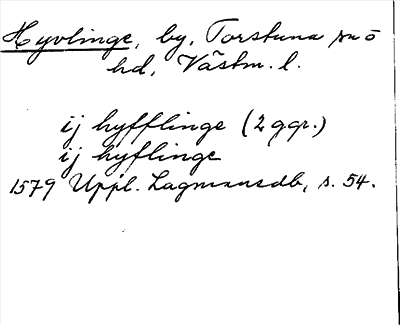 Hyvlinge, by, Torstuna sn o
hd, Västm. l.
ij hyfflinge (2 ggr.)
ij hyflinge
1579 Uppl. Lagmansdb, s. 54.